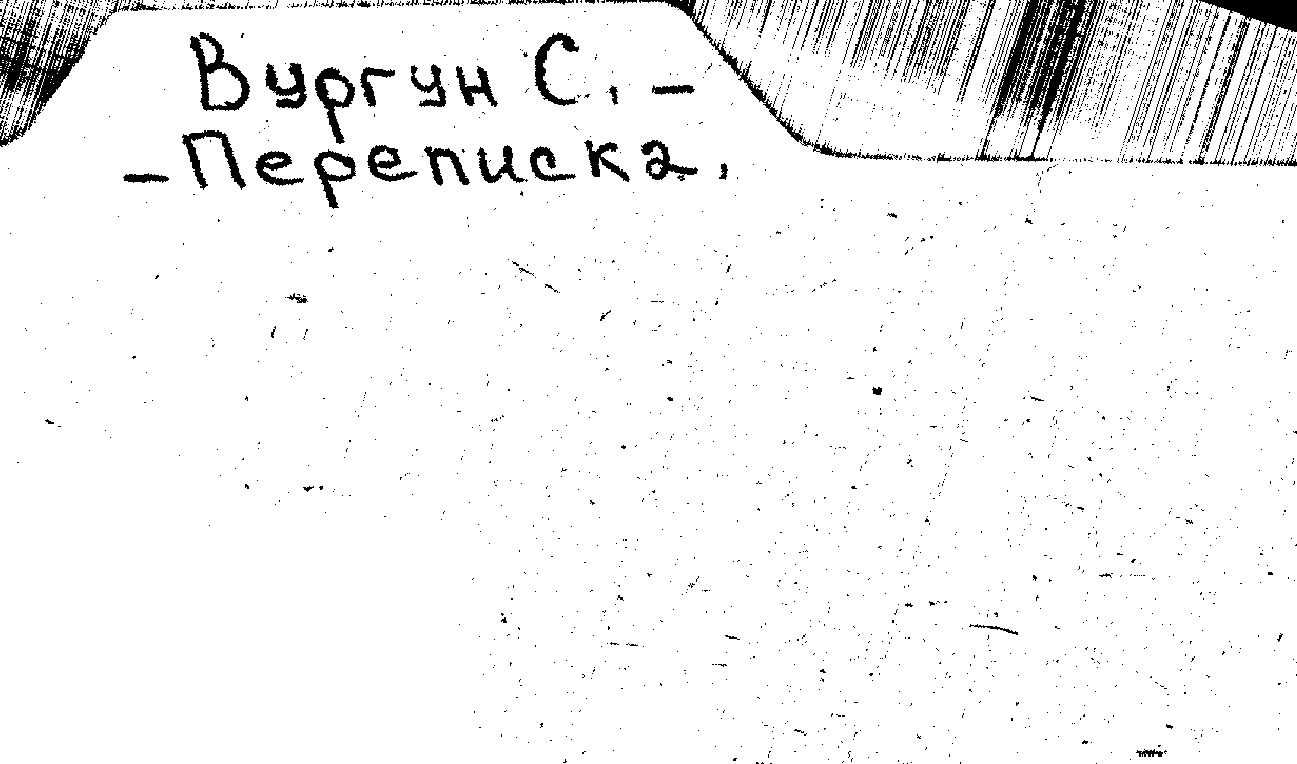 Вургун С. –
– Переписка.